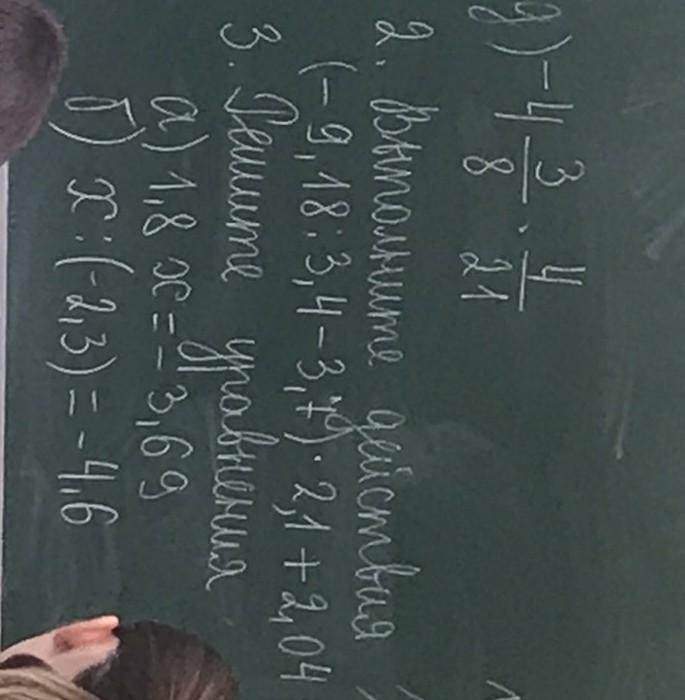 д) -4 3/8 · 4/21
2. Выполните действия
(-9,18 : 3,4 - 3,7) · 2,1 + 2,04
3. Решите уравнения
а) 1,8 x = -3,69
б) x : (-2,3) = -4,6